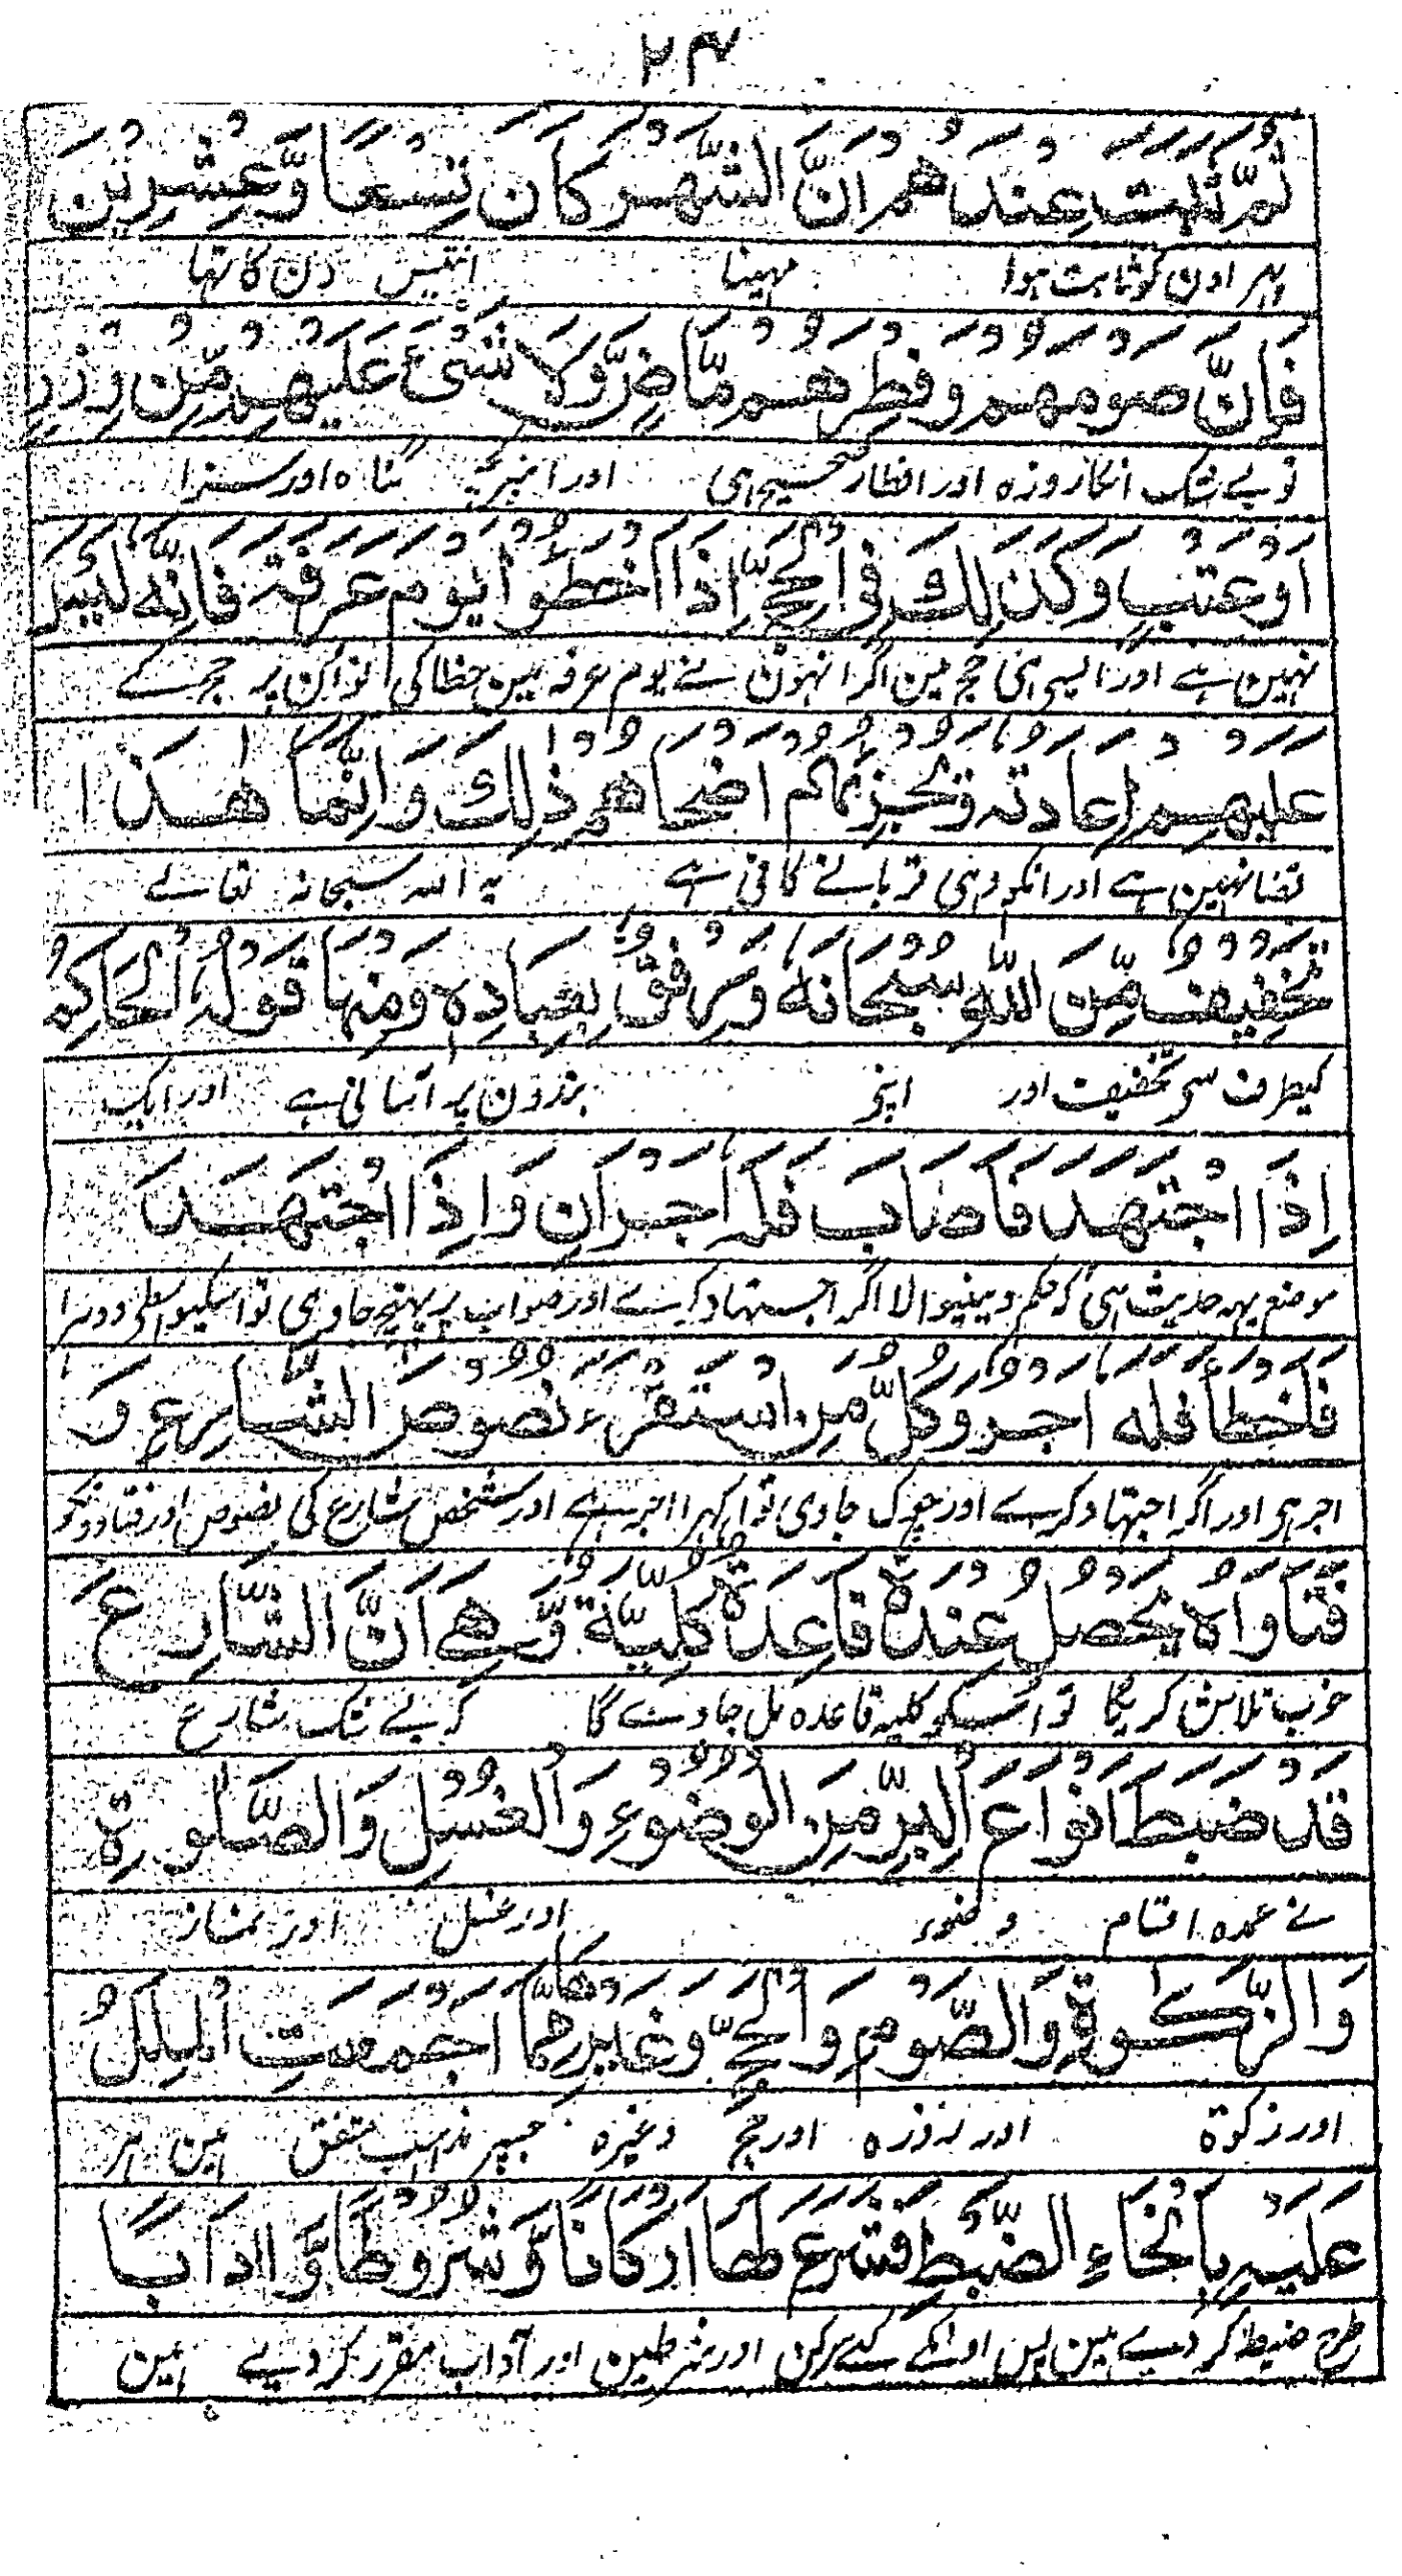 ۲۴
ثُمَّ ثَبَتَ عِنْدَهُمْ اَنَّ الشَّهْرَ كَانَ تِسْعًا وَّعِشْرِيْنَ
پہر اون کو ثابت ہوا مہینا انتیس دن کا تہا
فَاِنَّ صَوْمَهُمْ وَفِطْرَهُمْ مَاضٍ وَّلَا شَيْءَ عَلَيْهِمْ مِّنْ وِّزْرٍ
تو بے شک انکا روزہ اور افطار صحیح ہی اور انپر کچھ گناہ اور سزا
اَوْ عَتْبٍ وَكَذٰلِكَ فِي الْحَجِّ اِذَا اَخْطَؤُا يَوْمَ عَرَفَةَ فَاِنَّهٗ لَيْسَ
نہین ہے اور ایسی ہی حج مین اگر انہون نے یوم عرفہ مین خطا کی تو اُن پر حج کے
عَلَيْهِمْ اِعَادَتُهٗ وَتُجْزِئُهُمْ اَضْحَاهُمْ ذٰلِكَ وَاِنَّمَا هٰذَا
قضا نہین ہے اور انکو وہی قربانے کافی ہے یہ اللہ سبحانہ تعالے
تَخْفِيْفٌ مِّنَ اللّٰهِ سُبْحَانَهٗ وَرِفْقٌ بِعِبَادِهٖ وَمِنْهَا قَوْلُهٗ اَلْحَاكِمُ
کیطرف سی تخفیف اور اپنی بندون پر آسانی ہے اور ایک
اِذَا اجْتَهَدَ فَاَصَابَ فَلَهٗ اَجْرَانِ وَاِذَا اجْتَهَدَ
موضع یہہ حدیث ہی کہ حکم دینیوالا اگر اجتہاد کرے اور صواب پر پہنچ جاوی تو اسکیواسطی دوہرا
فَاَخْطَأَ فَلَهٗ اَجْرٌ وَكُلُّ مَنِ اسْتَقْرَءَ نُصُوْصَ الشَّارِعِ وَ
اجر ہی اور اگر اجتہاد کرے اور چوک جاوی تو اکہرا اجر ہے اور شخص شارع کی نصوص اور فتاوونکو
فَتَاوَاهُ يَحْصُلُ عِنْدَهٗ قَاعِدَةٌ كُلِّيَّةٌ وَّهِيَ اَنَّ الشَّارِعَ
خوب تلاش کریگا تو اُسکو کلیہ قاعدہ مل جاوے گا کہ بے شک شارع
قَدْ ضَبَطَ اَنْوَاعَ الْبِرِّ مِنَ الْوُضُوْءِ وَالْغُسْلِ وَالصَّلٰوةِ
نے عمدہ اقسام وضوء اور غسل اور نماز
وَالزَّكٰوةِ وَالصَّوْمِ وَالْحَجِّ وَغَيْرِهَا مِمَّا اَجْمَعَتِ الْمِلَلُ
اور زکوة اور روزہ اور حج وغیرہ جسپر مذاہب متفق ہین ہر
عَلَيْهِ بِاَنْحَاءِ الضَّبْطِ فَشَرَعَ لَهَا اَرْكَانًا وَّشُرُوْطًا وَّاٰدَابًا
طرح ضبط کر دیے ہین پس اونکے لئے رکن اور شرطین اور آداب مقرر کر دیے ہین